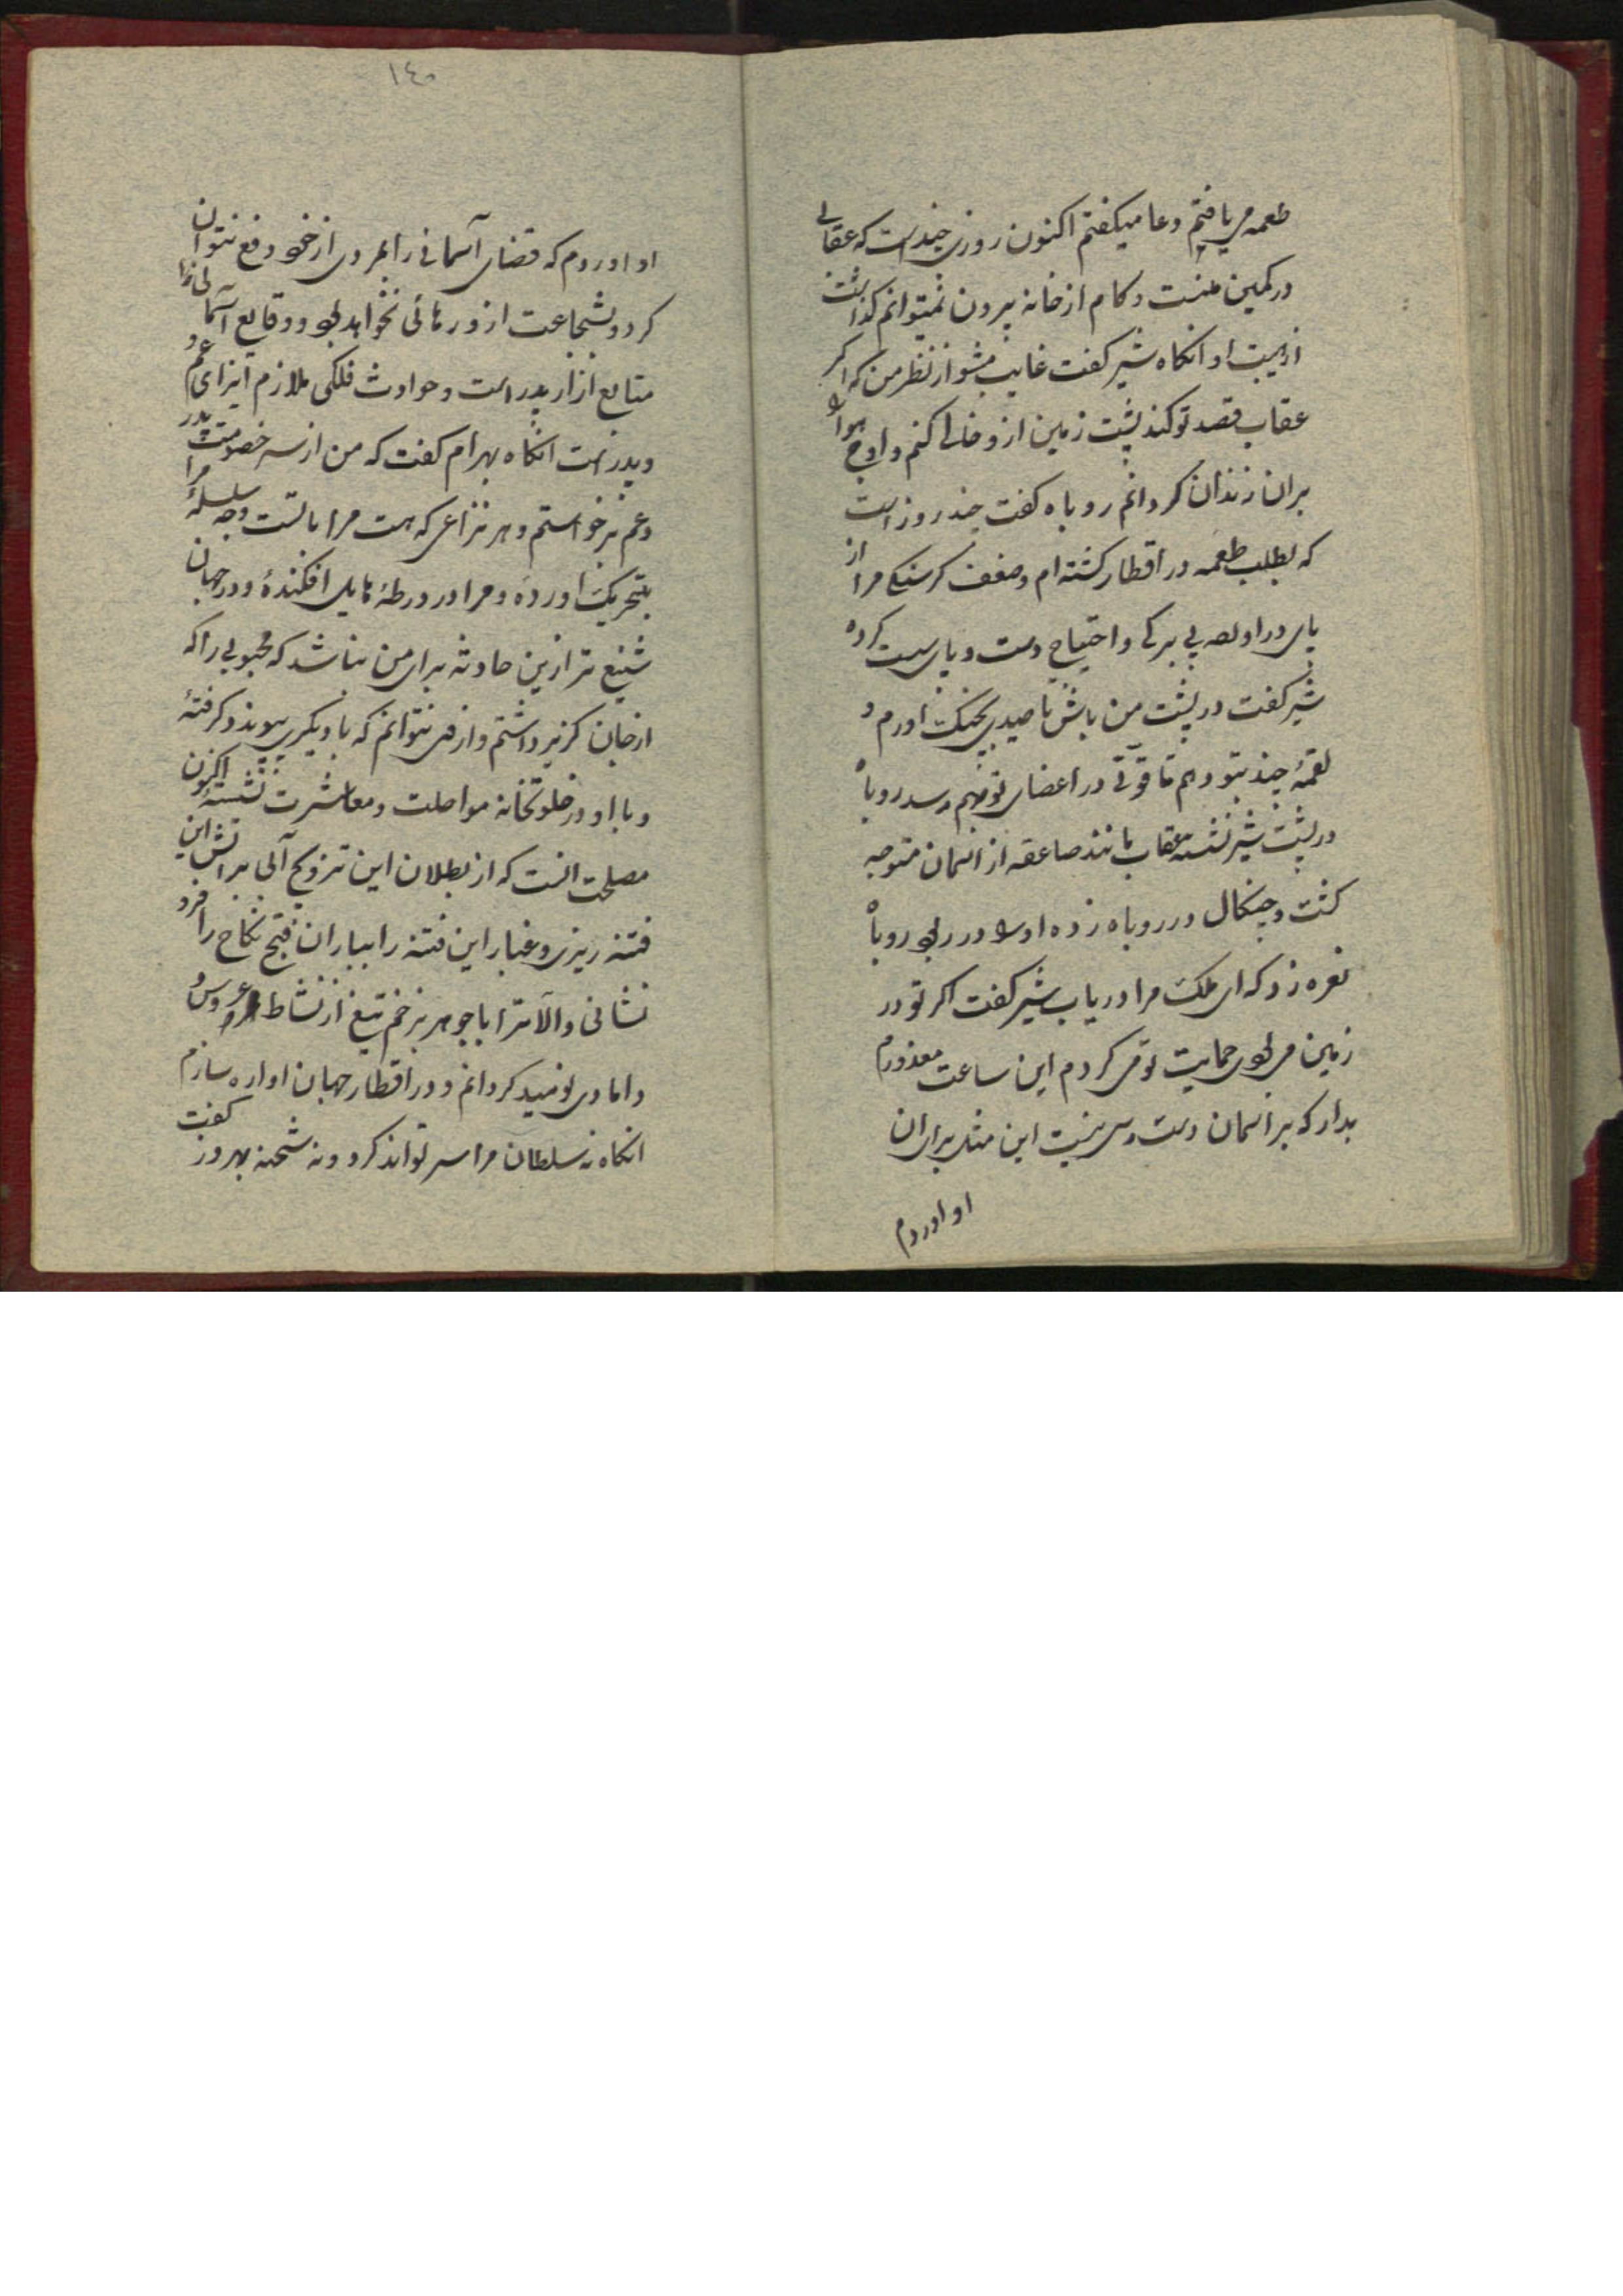 طعمه می یافتم و دعا میکفتم اکنون روزی چندست که عقابی
در کمین منست و کام از خانه بیرون نمیتوانم کذاشت
از هیبت او انکاه شیر کفت غایب مشو از نظر من که اکر
عقاب قصد تو کند پشت زمین ازو خالی کنم و اوج هوا
بران زندان کردانم روباه کفت چند روز است
که بطلب طعمه در اقطار کشته ام و ضعف کرسنکی مرا از
پای در آورده بی برکی و احتیاج دست و پای سست کرده
شیر کفت در پشت من باش تا صیدی بچنک اورم و
لقمهٔ چند بتو دهم تا قوتی در اعضای تو بهم رسد روباه
در پشت شیر نشست عقاب مانند صاعقه از اسمان متوجه
کشت و چنکال در روباه زده او را در ربود روباه
نعره زد که ای ملک مرا دریاب شیر کفت اکر تو در
زمین می بودی حمایت تو می کردم این ساعت معذورم
بدار که بر اسمان دست رس نیست این مثل برای ان
او اوردم
١٤٠
او اوردم که قضای آسمانی را بمردی از خود دفع نتوان
کرد و بشجاعت ازو رهائی نخواهد بود و وقایع آسمانی ترا
متابع ازار پدر است و حوادث فلکی ملازم ایزای عم و
و پدر است انکاه بهرام کفت که من از سر خصومت پدر
و عم برخواستم و هر نزاعی که هست مرا با تست چه سلسلهٔ مرا
بتحریک اوردهٔ و مرا در ورطهٔ هایل افکندهٔ و در جهان
شنیع تر ازین حادثه برای من نباشد که محبوبی را که
از جان کزیر داشتم و ازو نتوانم که با دیکری پیوند کرفتهٔ
و با او در خلوتخانه مواصلت و معاشرت نشستهٔ اکنون
مصلحت انست که از بطلان این تزویج آبی بر اتش این
فتنه ریزی و غبار این فتنه را بباران فتح نکاح را فرو
نشانی والا ترا با جوهر بزخم تیغ از نشاط عروس و
دامادی نومید کردانم و در اقطار جهان اواره سازم
انکاه نه سلطان مرا سر تواند کرد و نه شحنه بهروز کفت